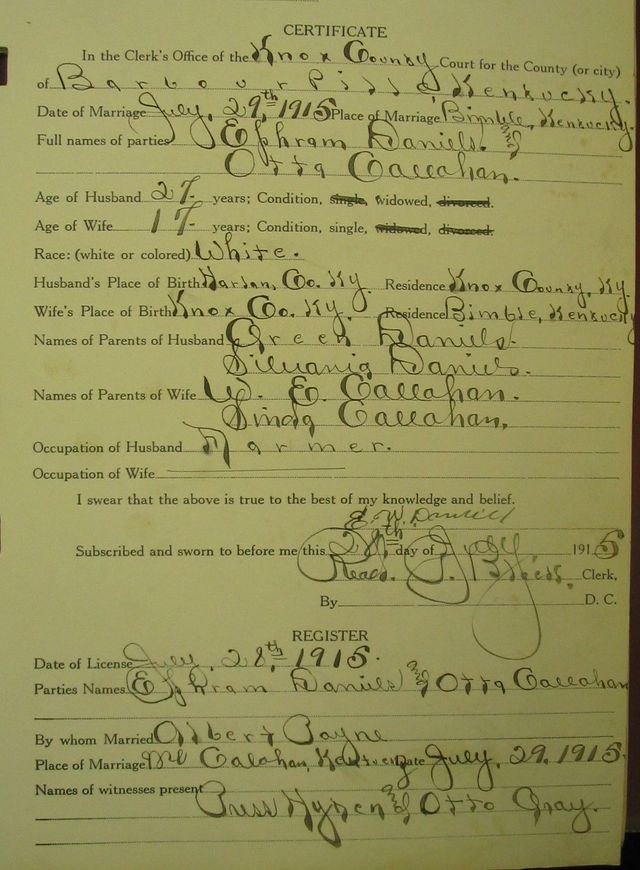 CERTIFICATE
In the Clerk's Office of the Knox County Court for the County (or city)
of Barbourville, Kentucky.
Date of Marriage July, 29th, 1915 Place of Marriage Bimble, Kentucky.
Full names of parties Ephram Daniels. &
Otta Callahan.
Age of Husband 27 years; Condition, single, widowed, divorced.
Age of Wife 17 years; Condition, single, widowed, divorced.
Race: (white or colored) White.
Husband's Place of Birth Harlan, Co. Ky. Residence Knox County, Ky
Wife's Place of Birth Knox Co. Ky. Residence Bimble, Kentucky
Names of Parents of Husband Green Daniels.
Silvania Daniels.
Names of Parents of Wife W. E. Callahan.
Sinda Callahan.
Occupation of Husband Farmer.
Occupation of Wife
I swear that the above is true to the best of my knowledge and belief.
E. W. Daniels
Subscribed and sworn to before me this 28th day of July 1915
Read. Clerk,
By D. C.
REGISTER
Date of License July, 28th, 1915.
Parties Names Ephram Daniels & Otta Callahan
By whom Married Albert Payne
Place of Marriage Mc Calahan, Kentucky Date July, 29, 1915.
Names of witnesses present & Otto Gray.